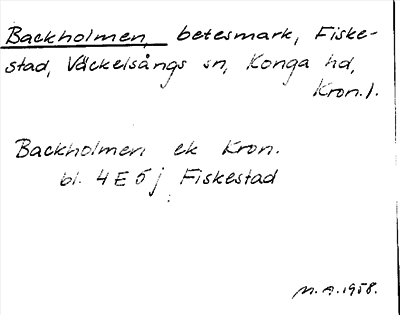 Backholmen, betesmark, Fiske-
stad, Väckelsångs sn, Konga hd,
Kron.l.
Backholmen ek Kron.
bl. 4E5j Fiskestad
M.A.1958.